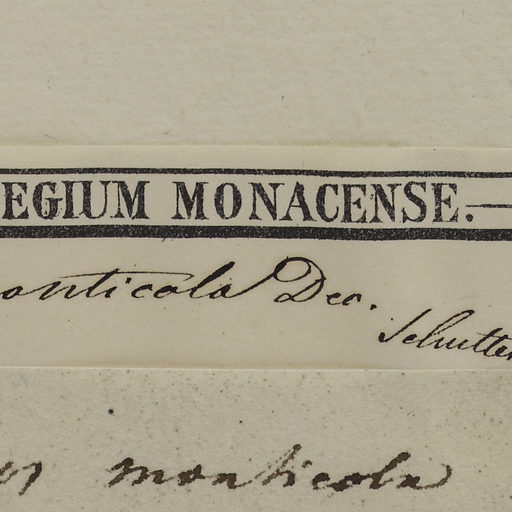 EGIUM MONACENSE.
onticola Dec.
monticola